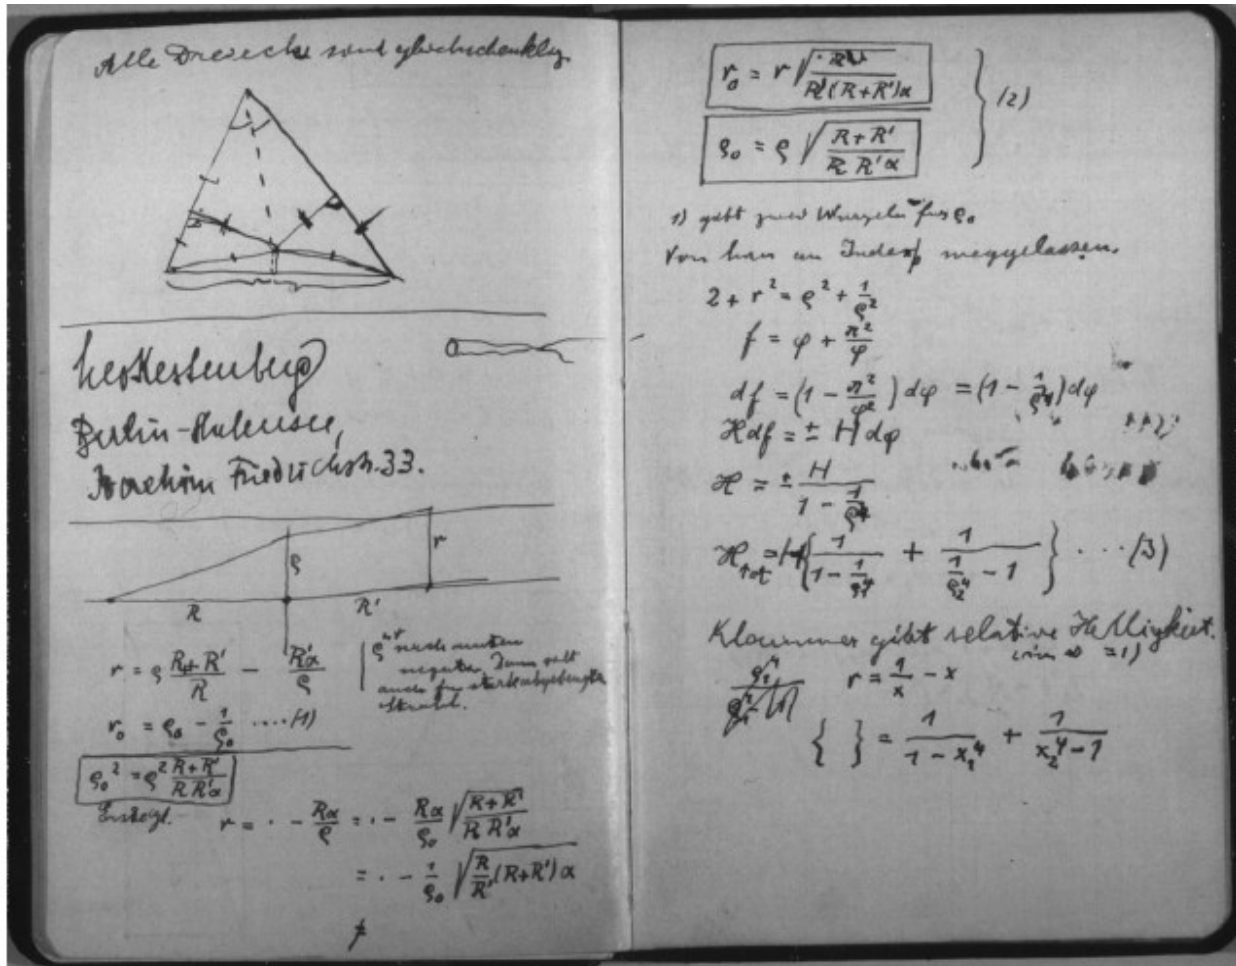 Alle Dreiecke sind gleichschenklig
Berlin-Halensee,
Joachim Friedrichstr. 33.
ρ r
R R'
r = ρ (R+R')/R − R'α/ρ
ρ nach unten
negativ. Dann gilt
auch für stärker abgebeugte
Strahl.
r₀ = ρ₀ − 1/ρ₀ ....(1)
ρ₀² = ρ² (R+R')/(R R'α)
r = · − Rα/ρ = · − Rα/ρ₀ √((R+R')/(R R'α))
= · − 1/ρ₀ √(R/R' (R+R')α)
r₀ = r √(R/(R'(R+R')α))
ρ₀ = ρ √((R+R')/(R R'α))
} (2)
1) gibt zwei Wurzeln für ρ₀
Von hier an Index weggelassen.
2 + r² = ρ² + 1/ρ²
f = φ + π²/φ
df = (1 − π²/φ²) dφ = (1 − 1/ρ⁴) dφ
ℋ df = ± H dφ
ℋ = ± H/(1 − 1/ρ⁴)
ℋtot = H {1/(1 − 1/ρ₁⁴) + 1/(1/ρ₂⁴ − 1)} .... (3)
Klammer gibt relative Helligkeit.
(in ∞ = 1)
r = 1/x − x
{ } = 1/(1 − x₁⁴) + 1/(x₂⁴ − 1)